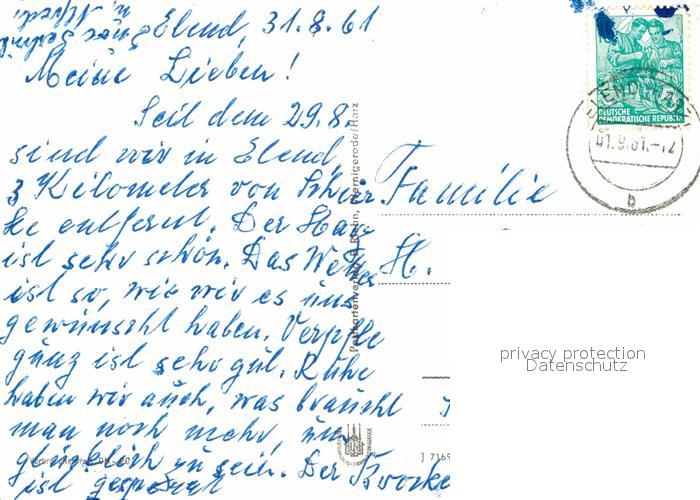 Elend, 31.8.61
Meine Lieben!
Seit dem 29.8.
sind wir in Elend,
3 Kilometer von Schier
ke entfernt. Der Harz
ist sehr schön. Das Wetter
ist so, wie wir es uns
gewünscht haben. Verpfle
gung ist sehr gut. Ruhe
haben wir auch, was braucht
man noch mehr, um
glücklich zu sein. Der Brocken
ist gesperrt
Familie
H.
DEUTSCHE
DEMOKRATISCHE REPUBLIK
ELEND
01.9.61.-12
b
privacy protection
Datenschutz